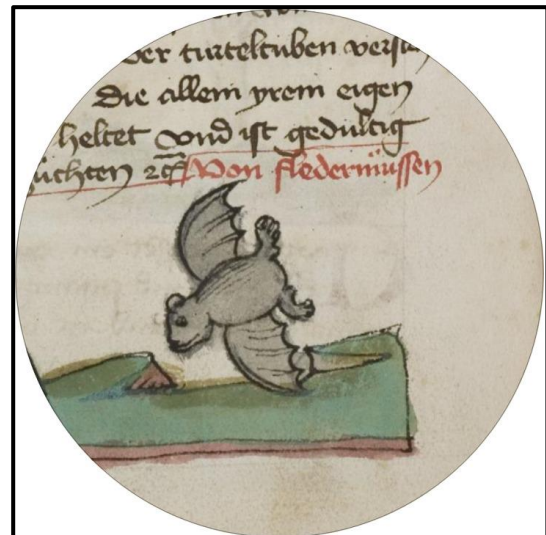 der turteltuben verstan
Die allein yrem eigen
heltet vnd ist gedultig
züchten ꝛcͣ Von fledermüssen